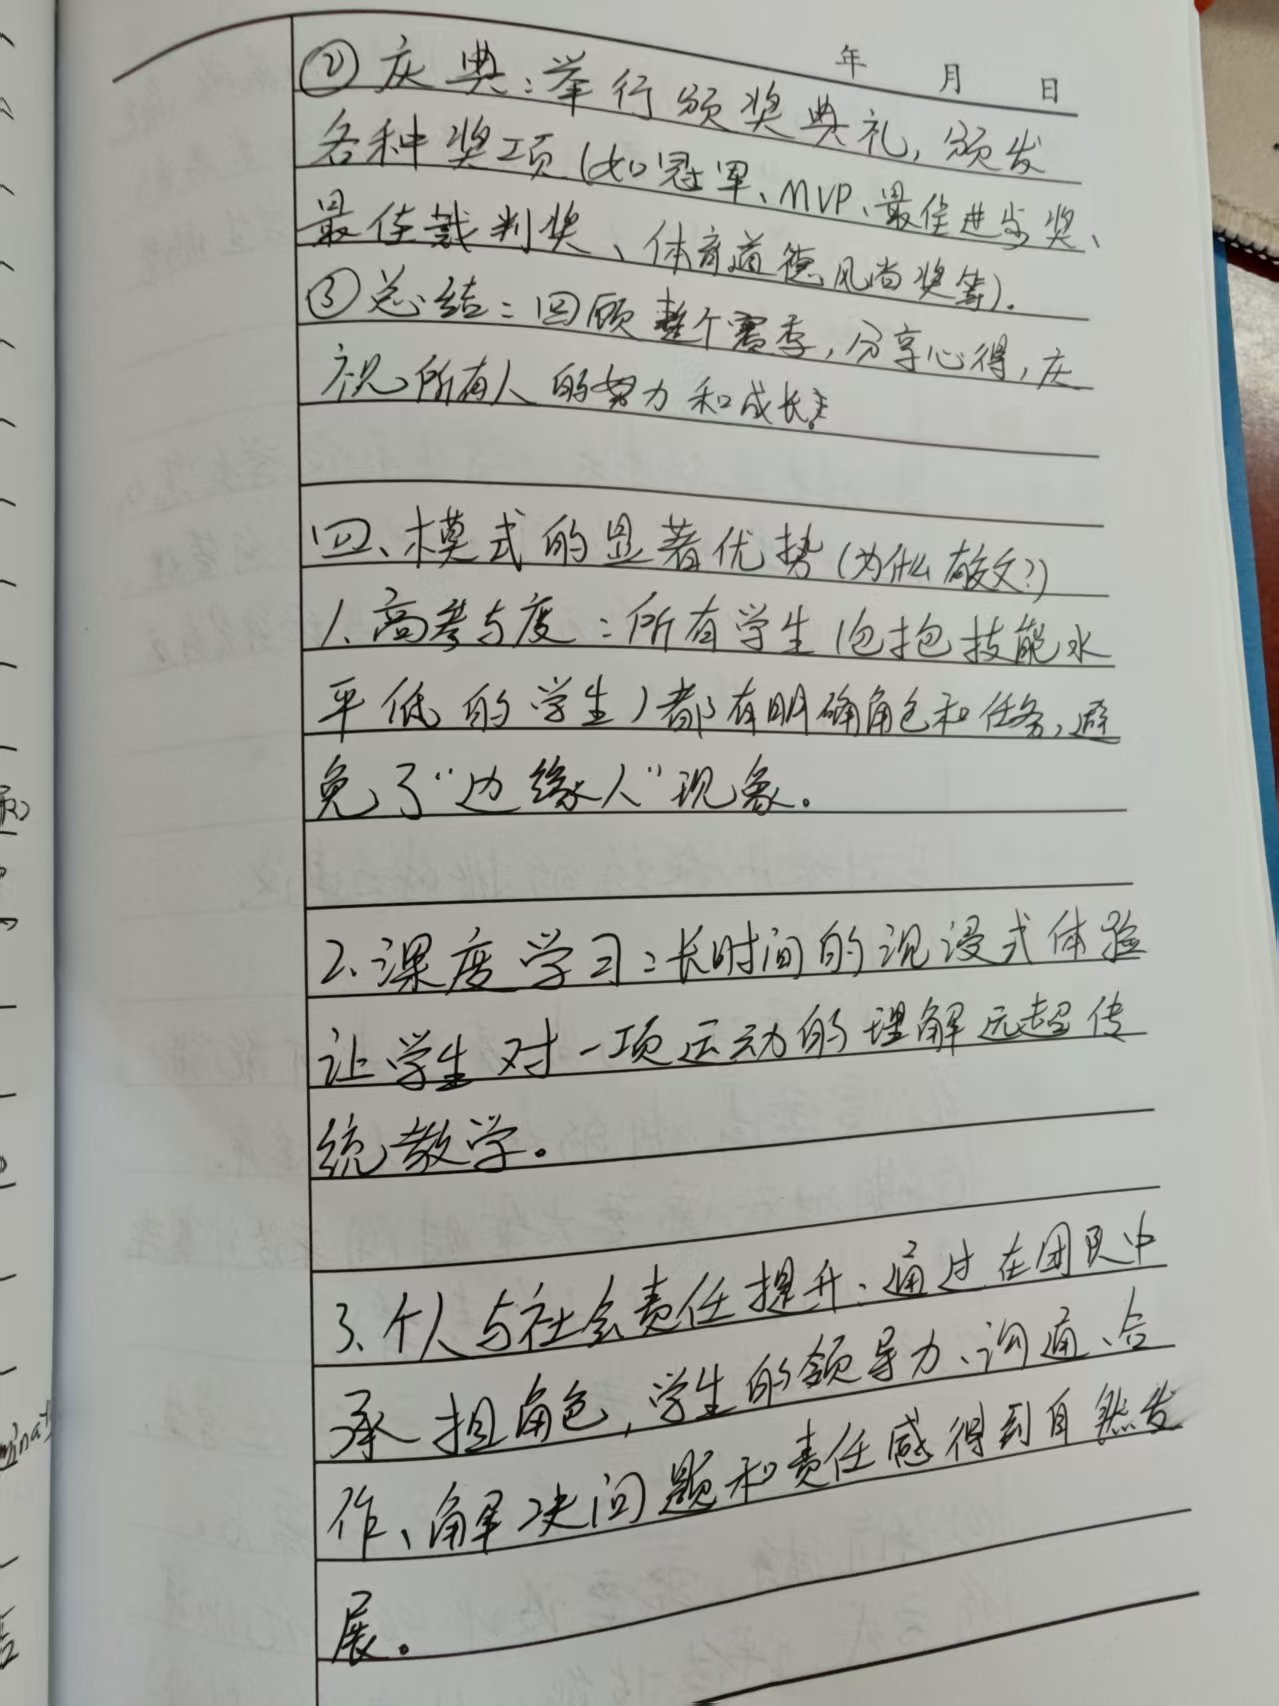 年 月 日
②庆典：举行颁奖典礼，颁发
各种奖项（如冠军、MVP、最佳进步奖、
最佳裁判奖、体育道德风尚奖等）.
③总结：回顾整个赛季，分享心得，庆
祝所有人的努力和成长.
四、模式的显著优势（为什么有效？）
1、高参与度：所有学生（包抱技能水
平低的学生）都有明确角色和任务，避
免了“边缘人”现象。
2、深度学习：长时间的沉浸式体验
让学生对一项运动的理解远超传
统教学。
3、个人与社会责任提升：通过在团队中
承担角色，学生的领导力、沟通、合
作、解决问题和责任感得到自然发
展。